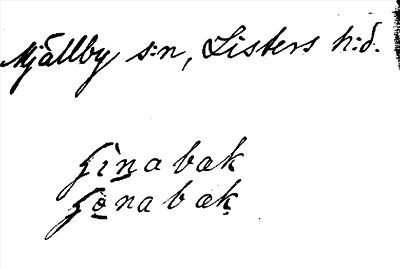 Mjällby s:n, Listers h:d.
ginabak
gonabak